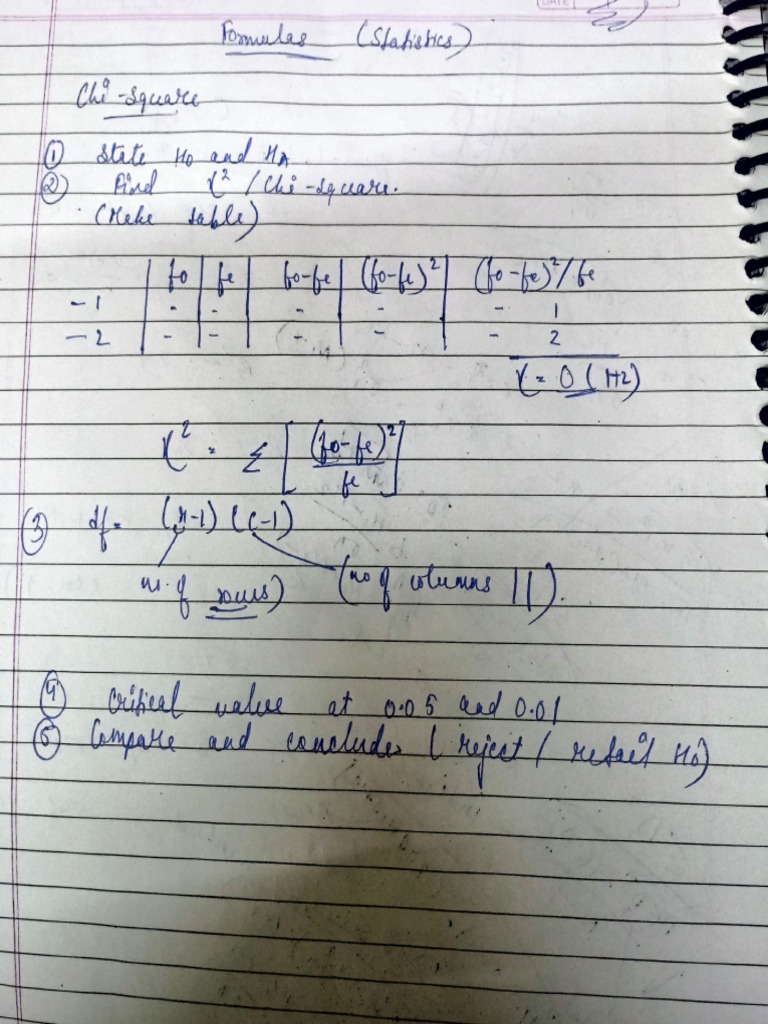 DATE
Formulas (Statistics)
Chi-Square
① State H0 and HA.
② Find χ² / Chi-square.
(Make table)
| fo | fe | fo-fe | (fo-fe)² | (fo-fe)²/fe
-1 | - | - | - | - | - 1
-2 | - | - | - | - | - 2
χ = O (1+2)
χ² = Σ [(fo-fe)²/fe]
③ df = (r-1) (c-1)
no. of rows) (no of columns ||).
④ Critical value at 0.05 and 0.01
⑤ Compare and conclude (reject / retail H0)